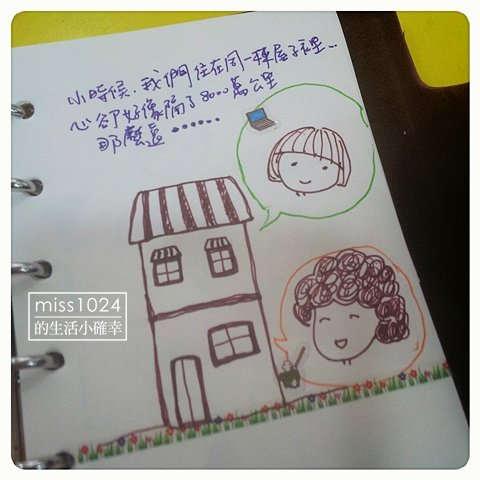 小時候.我們住在同一棟屋子裡...
心卻好像隔了8000萬公里
那麼遠······
miss1024
的生活小確幸